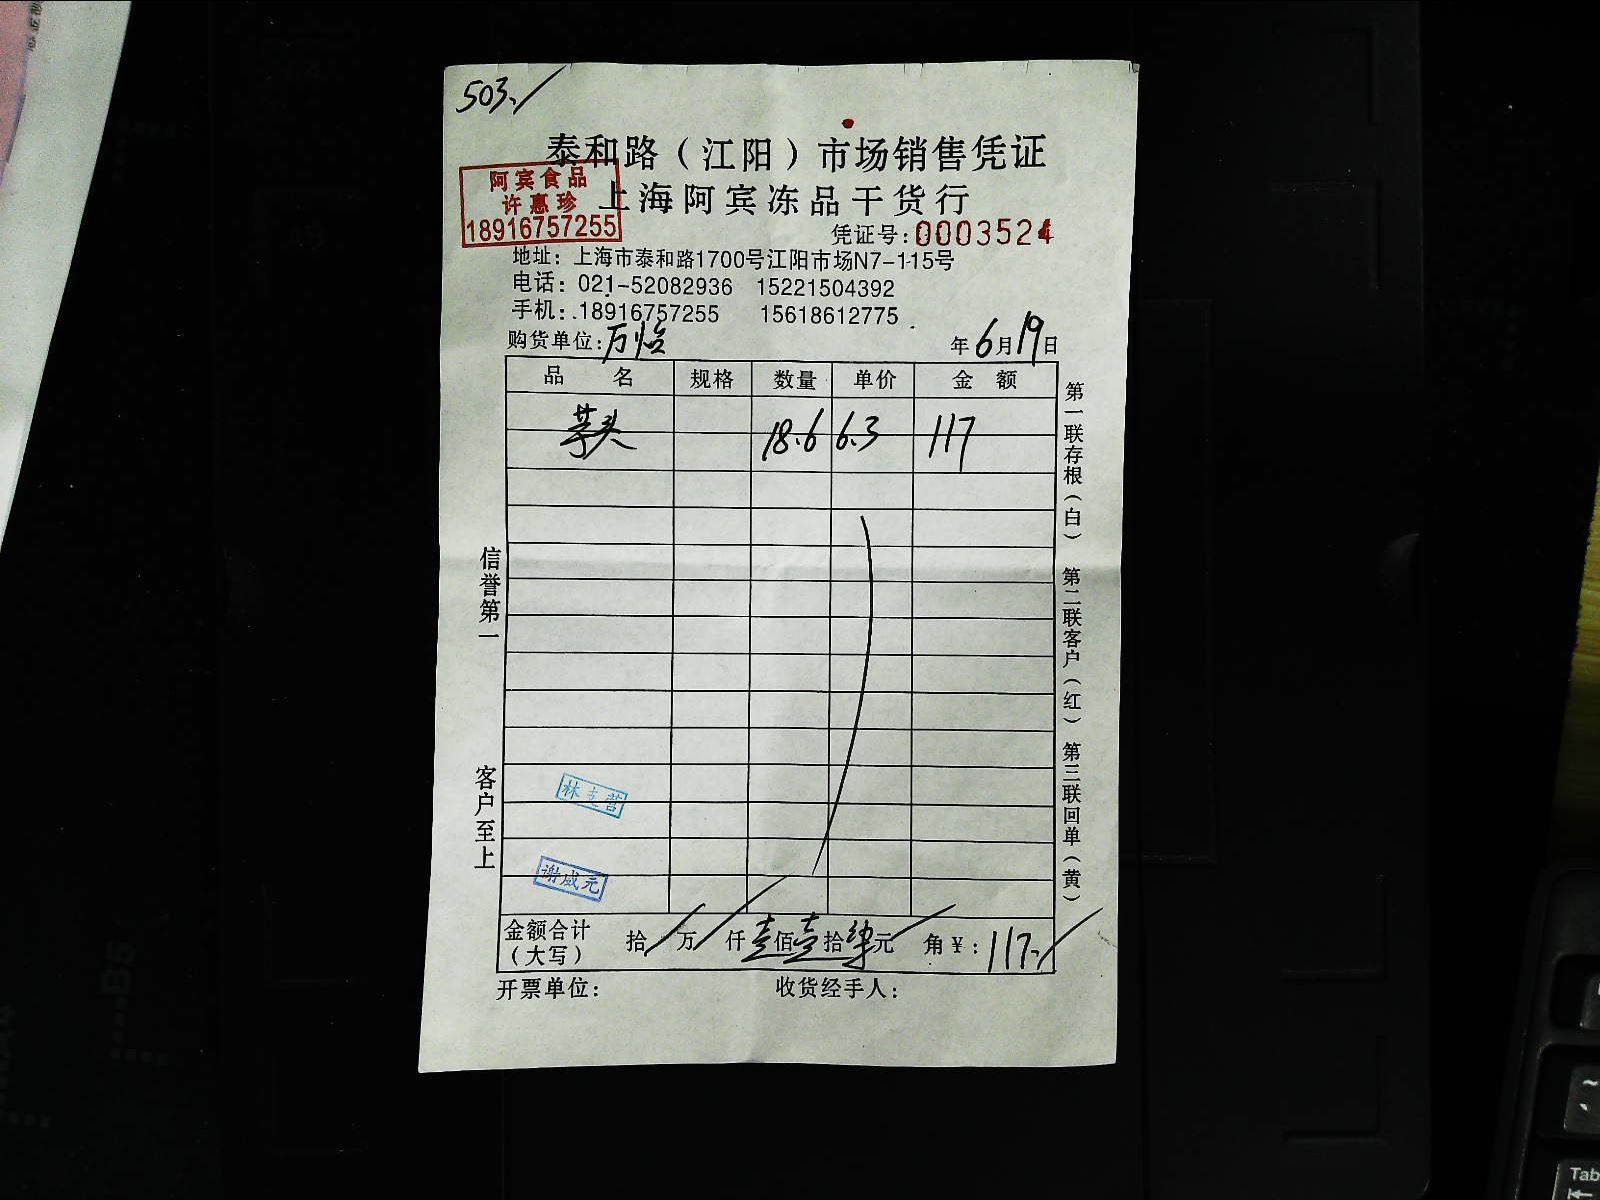 503.
泰和路（江阳）市场销售凭证
阿宾食品
许惠珍
18916757255
上海阿宾冻品干货行
凭证号:0003524
地址：上海市泰和路1700号江阳市场N7-115号
电话：021-52082936 15221504392
手机：18916757255 15618612775
购货单位:万怡 年6月19日
品名 规格 数量 单价 金额
芋头 18.6 6.3 117
第一联存根（白） 第二联客户（红） 第三联回单（黄）
信誉第一
客户至上
林支营
谢威元
金额合计（大写） 拾 万 仟 壹佰壹拾柒元 角 ¥：117.
开票单位： 收货经手人：
Tab